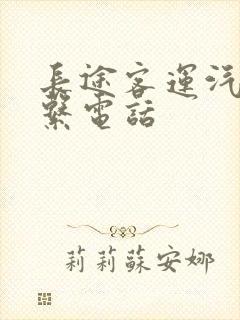 長途客運汽
繫電話
莉莉蘇安娜